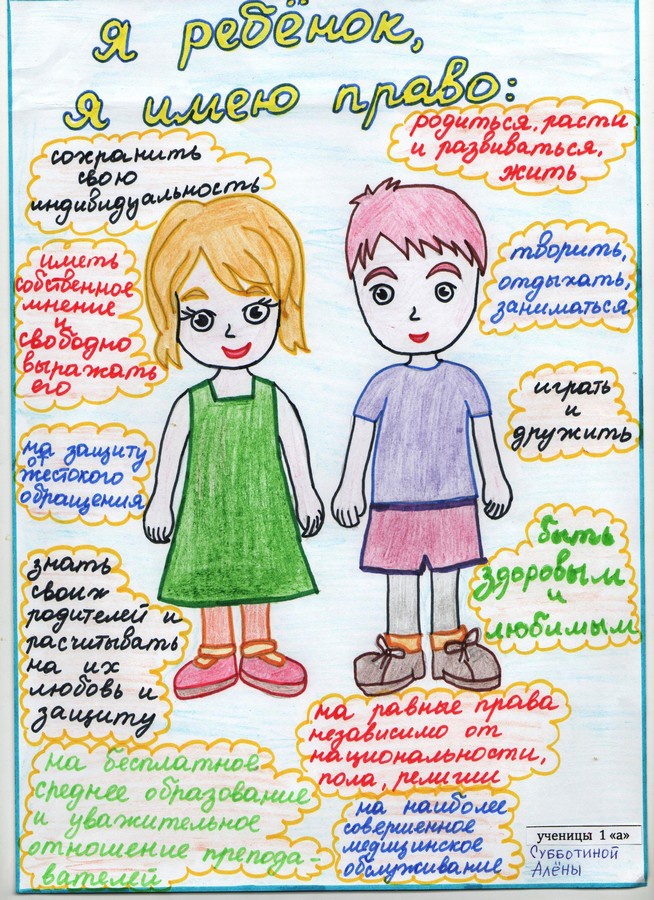 Я ребёнок,
я имею право:
сохранить
свою
индибидуальность
родиться, расти
и развиваться,
жить
иметь
собственное
мнение
и
свободно
выражать
его
творить,
отдыхать,
заниматься
играть
и
дружить
на защиту
от
жестокого
обращения
быть
здоровым
и
любимым
знать
своих
родителей и
расчитывать
на их
любовь и
защиту
на равные права
независимо от
национальности,
пола, религии
на бесплатное
среднее образование
и уважительное
отношение препода-
вателей
на наиболее
совершенное
медицинское
обслуживание
ученицы 1 «а»
Субботиной
Алёны